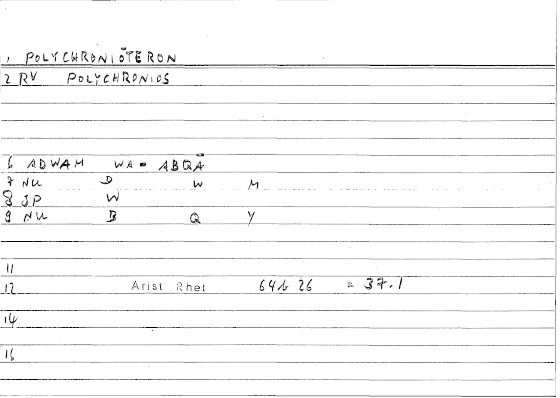 1 POLYCHRONIŌTERON
2 RV POLYCHRONIOS
6 ADWAM WA= ABQĀ
7 NU D W M
8 JP W
9 NU B Q Y
11
12 Arist Rhet 64b 26 = 37.1
14
16